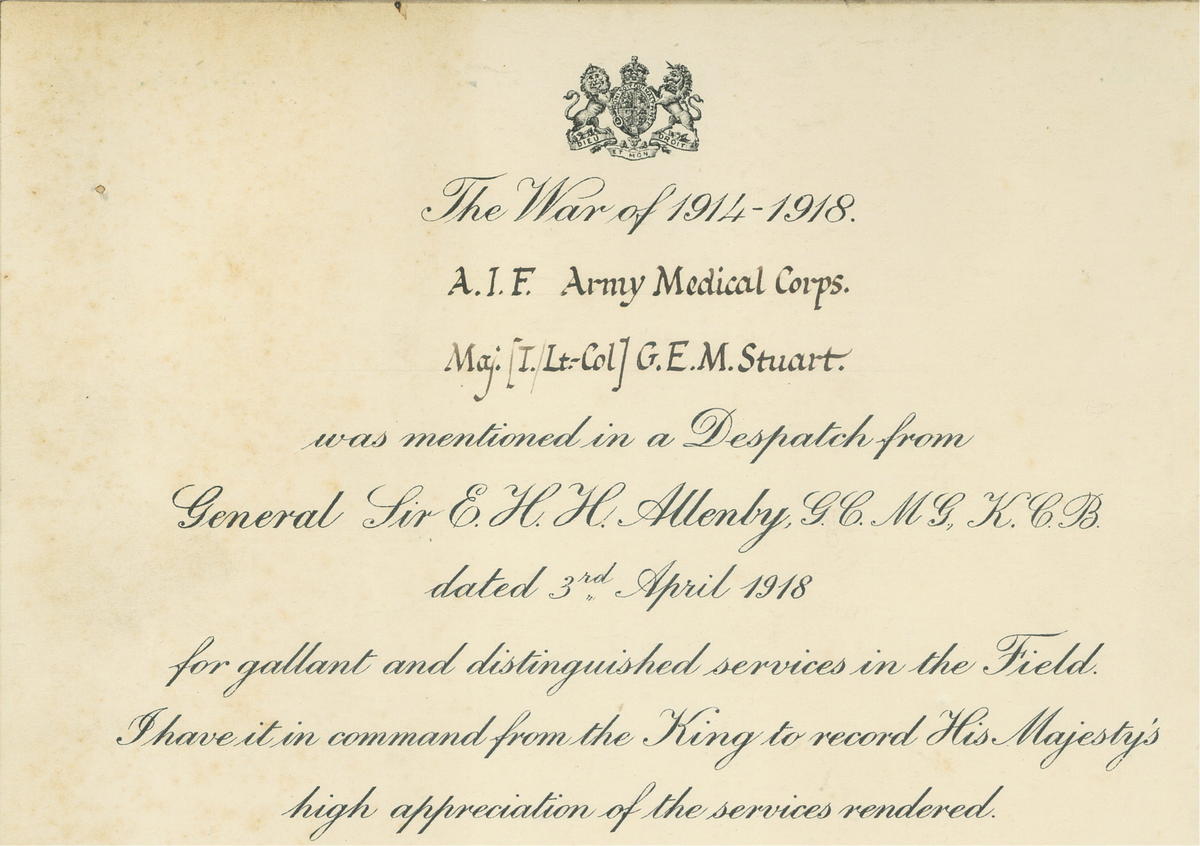 DIEU ET MON DROIT
The War of 1914-1918.
A.I.F. Army Medical Corps.
Maj. [T./Lt-Col] G.E.M. Stuart.
was mentioned in a Despatch from
General Sir E. H. H. Allenby, G.C.M.G., K.C.B.
dated 3rd April 1918
for gallant and distinguished services in the Field.
I have it in command from the King to record His Majesty's
high appreciation of the services rendered.